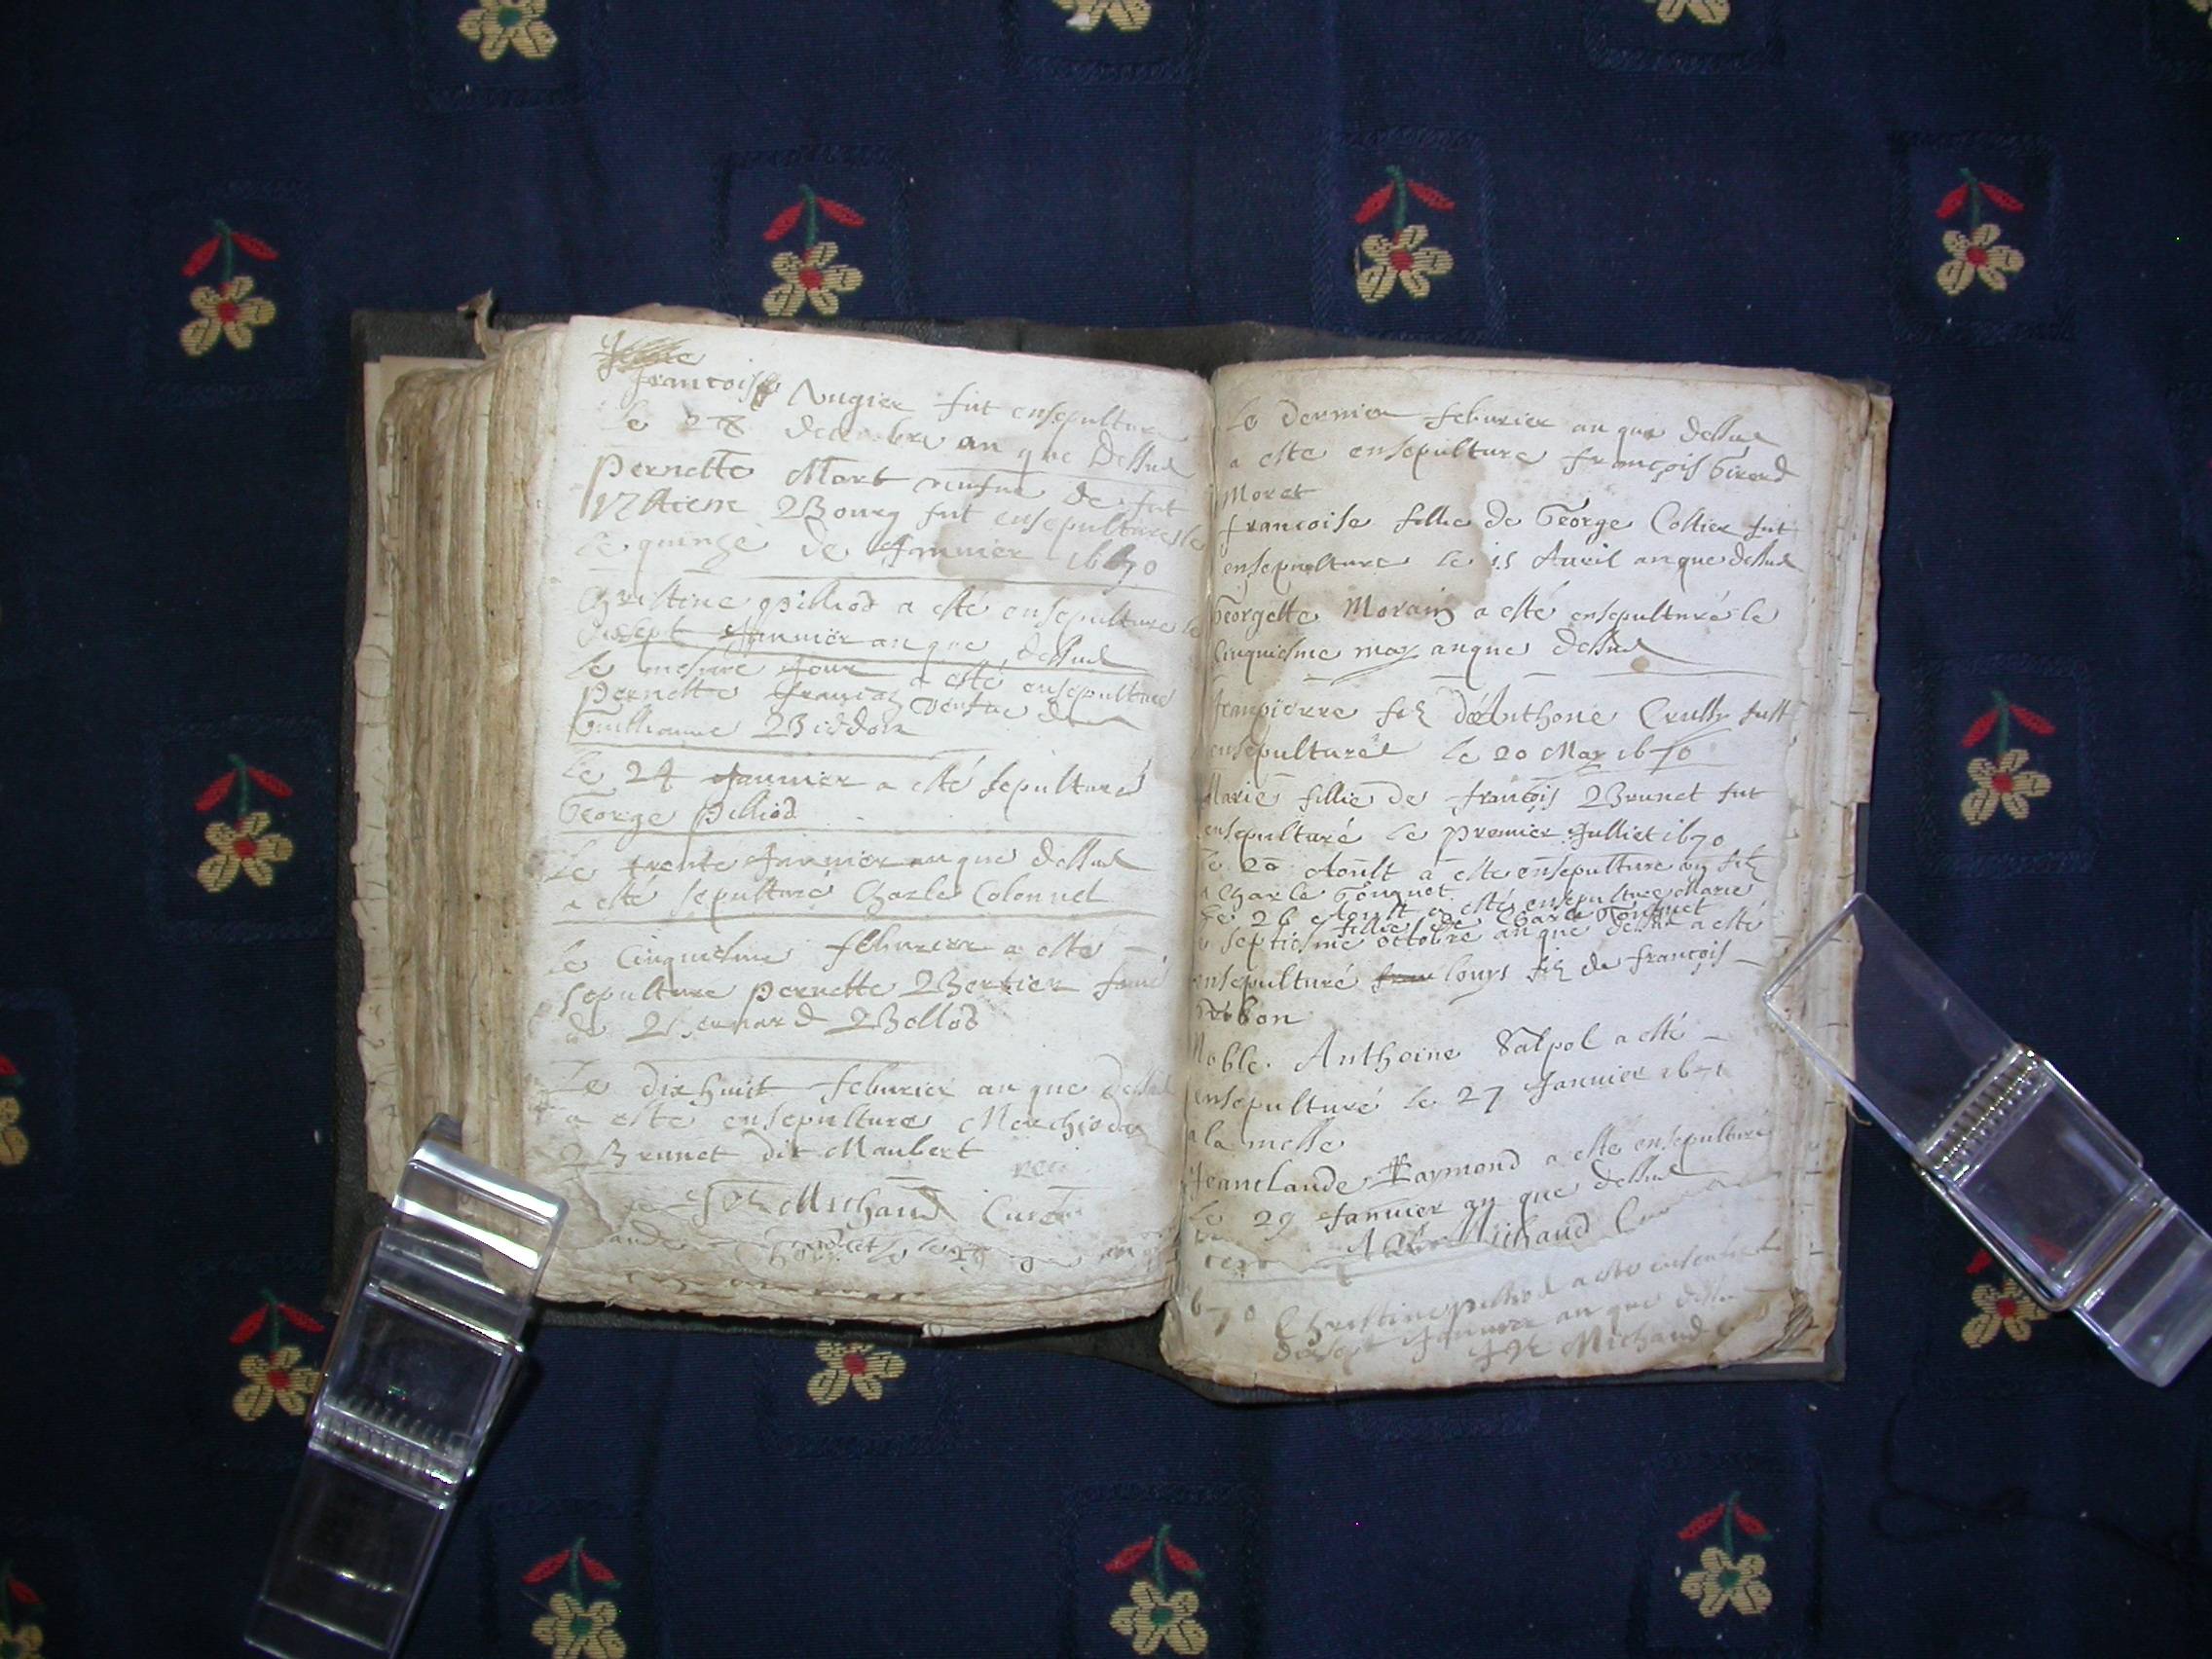 francoise Augier fut ensepulture
le 28 decembre an que dessus
pernette Mort veufue de fut
2Bourg fut ensepulturee le
le quinze de Januier 1670
Christine pilliod a esté ensepulturee le
dissept Januier an que dessus
le mesme Jour a esté ensepulturee
pernette francoz veufue de
Guilliaume 2Biddon
Le 24 Januier a esté sepulturé
George pilliod
Le trente Januier an que dessus
a esté sepulturé Charle Colonnel
le Cinquiesme feburier a esté
sepulture pernette 2Bertier
de 2Bernard 2Bollod
Le dix huit feburier an que dessus
a este ensepulture
2Brunet dit Maubert
Michaud Curé
le dernier feburier an que dessus
a este ensepulture françois Girend
Moret
francoise fillie de George Collier fut
ensepulture le 15 Auril an que dessus
Georgette Morain a esté ensepulturé le
Cinquiesme may an que dessus
Jeanpierre filz d'Anthone Crussy fust
ensepulturé le 20 May 1670
Marie fillie de françois 2Brunet fut
ensepulturé le premier Julliet 1670
le 20 Aoust a este ensepulture un filz
a Charle Touquet
Le 26 Aoust a esté ensepulture Marie
fillie de Charle Touquet
le septiesme octobre an que dessus a esté
ensepulturé louys filz de françois
Noble Anthoine Salpol a esté
ensepulturé le 27 Januier 1671
a la messe
Jeanclaude Raymond a esté ensepulturé
Le 29 Januier an que dessus
Michaud
1670 Christine pilliod a este ensepulture
dissept Januier an que dessus
Michaud